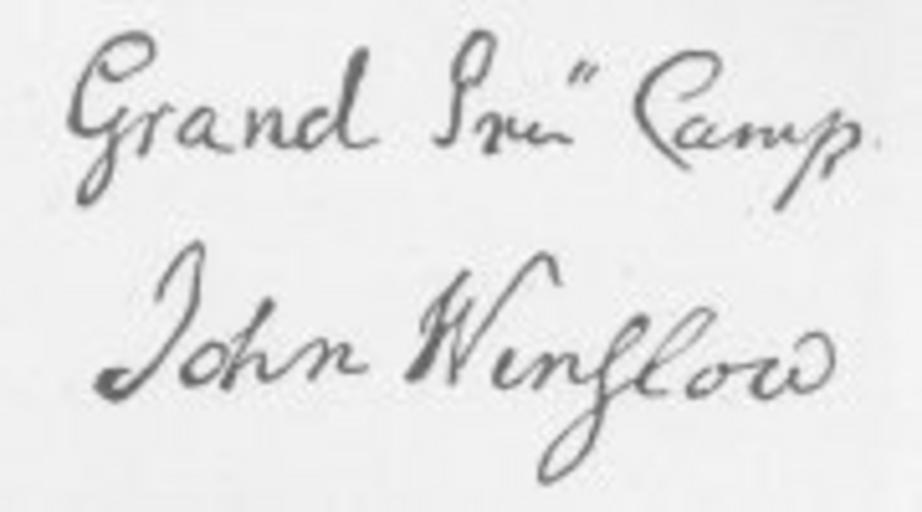 Grand Pre" Camp
John Winslow